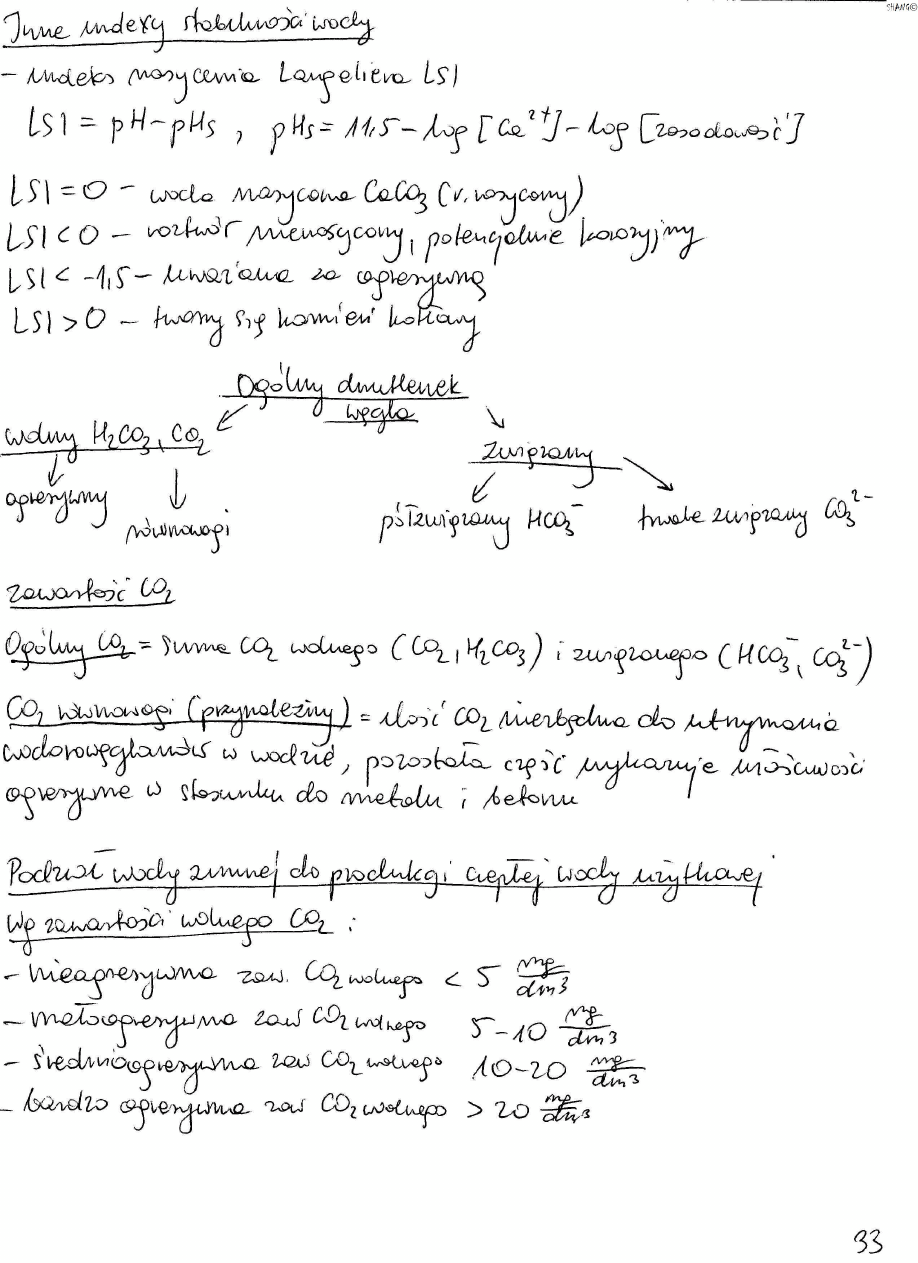 SHANG©
Inne indexy stabilności wody
- indeks nasycenia Langeliera LSI
LSI = pH-pHs , pHs = 11,5 - log [Ca²⁺] - log [zasadowość]
LSI = 0 - woda nasycona CaCO₃ (r. nasycony)
LSI < 0 - roztwór nienasycony, potencjalnie korozyjny
LSI < -1,5 - uważana za agresywną
LSI > 0 - tworzy się kamień kotłowy
Ogólny dwutlenek
węgla
wolny H₂CO₃, CO₂
związany
agresywny
równowagi
półzwiązany HCO₃⁻
trwale związany CO₃²⁻
zawartość CO₂
Ogólny CO₂ = suma CO₂ wolnego (CO₂, H₂CO₃) i związanego (HCO₃⁻, CO₃²⁻)
CO₂ równowagi (przynależny) = ilość CO₂ niezbędna do utrzymania
wodorowęglanów w wodzie, pozostała część wykazuje właściwości
agresywne w stosunku do metalu i betonu
Podział wody zimnej do produkcji ciepłej wody użytkowej
wg zawartości wolnego CO₂ :
- nieagresywna zaw. CO₂ wolnego < 5 mg/dm3
- małoagresywna zaw CO₂ wolnego 5-10 mg/dm3
- średnioagresywna zaw CO₂ wolnego 10-20 mg/dm3
- bardzo agresywna zaw CO₂ wolnego > 20 mg/dm3
33